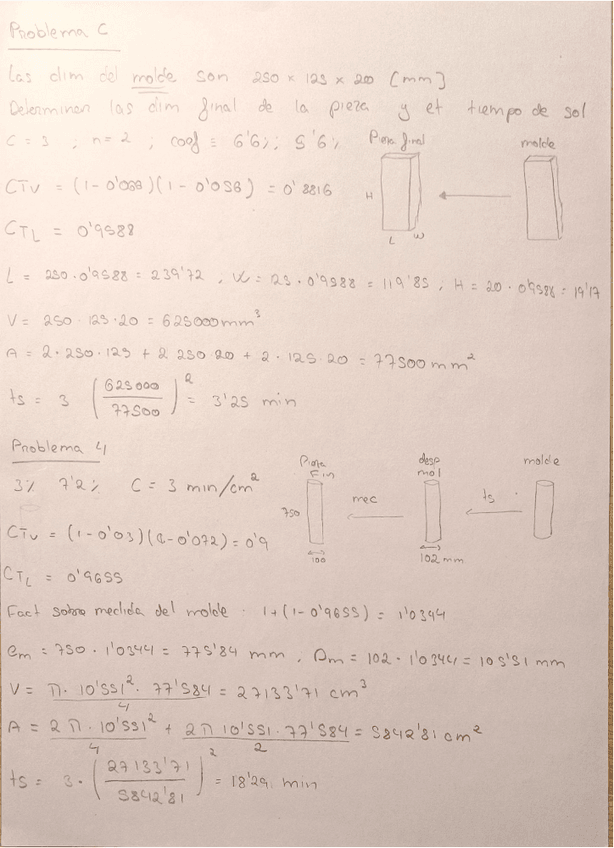 Problema C
Las dim del molde son 250 x 125 x 200 [mm]
Determinan las dim final de la pieza y et tiempo de sol
C = 3 ; n = 2 ; coef = 6'6% ; 5'6%
Pieza final molde
CTv = (1 - 0'066)(1 - 0'056) = 0'8816
H
L W
CTL = 0'9588
L = 250 · 0'9588 = 239'72 , W = 125 · 0'9588 = 119'85 ; H = 20 · 0'9588 = 19'17
V = 250 · 125 · 20 = 625000 mm³
A = 2 · 250 · 125 + 2 250 · 20 + 2 · 125 · 20 = 77500 mm²
ts = 3 (625000 / 77500)² = 3'25 min
Problema 4
Pieza Fin desp mol molde
3% 7'2% C = 3 min/cm²
750 mec ts
100 102 mm
CTv = (1 - 0'03)(1 - 0'072) = 0'9
CTL = 0'9655
Fact sobre medida del molde · 1 + (1 - 0'9655) = 1'0344
em = 750 · 1'0344 = 775'84 mm , Dm = 102 · 1'0344 = 105'51 mm
V = π · 10'551² · 77'584 / 4 = 27133'71 cm³
A = 2π · 10'551² / 4 + 2π 10'551 · 77'584 / 2 = 5842'81 cm²
ts = 3 · (27133'71 / 5842'81)² = 18'29 min